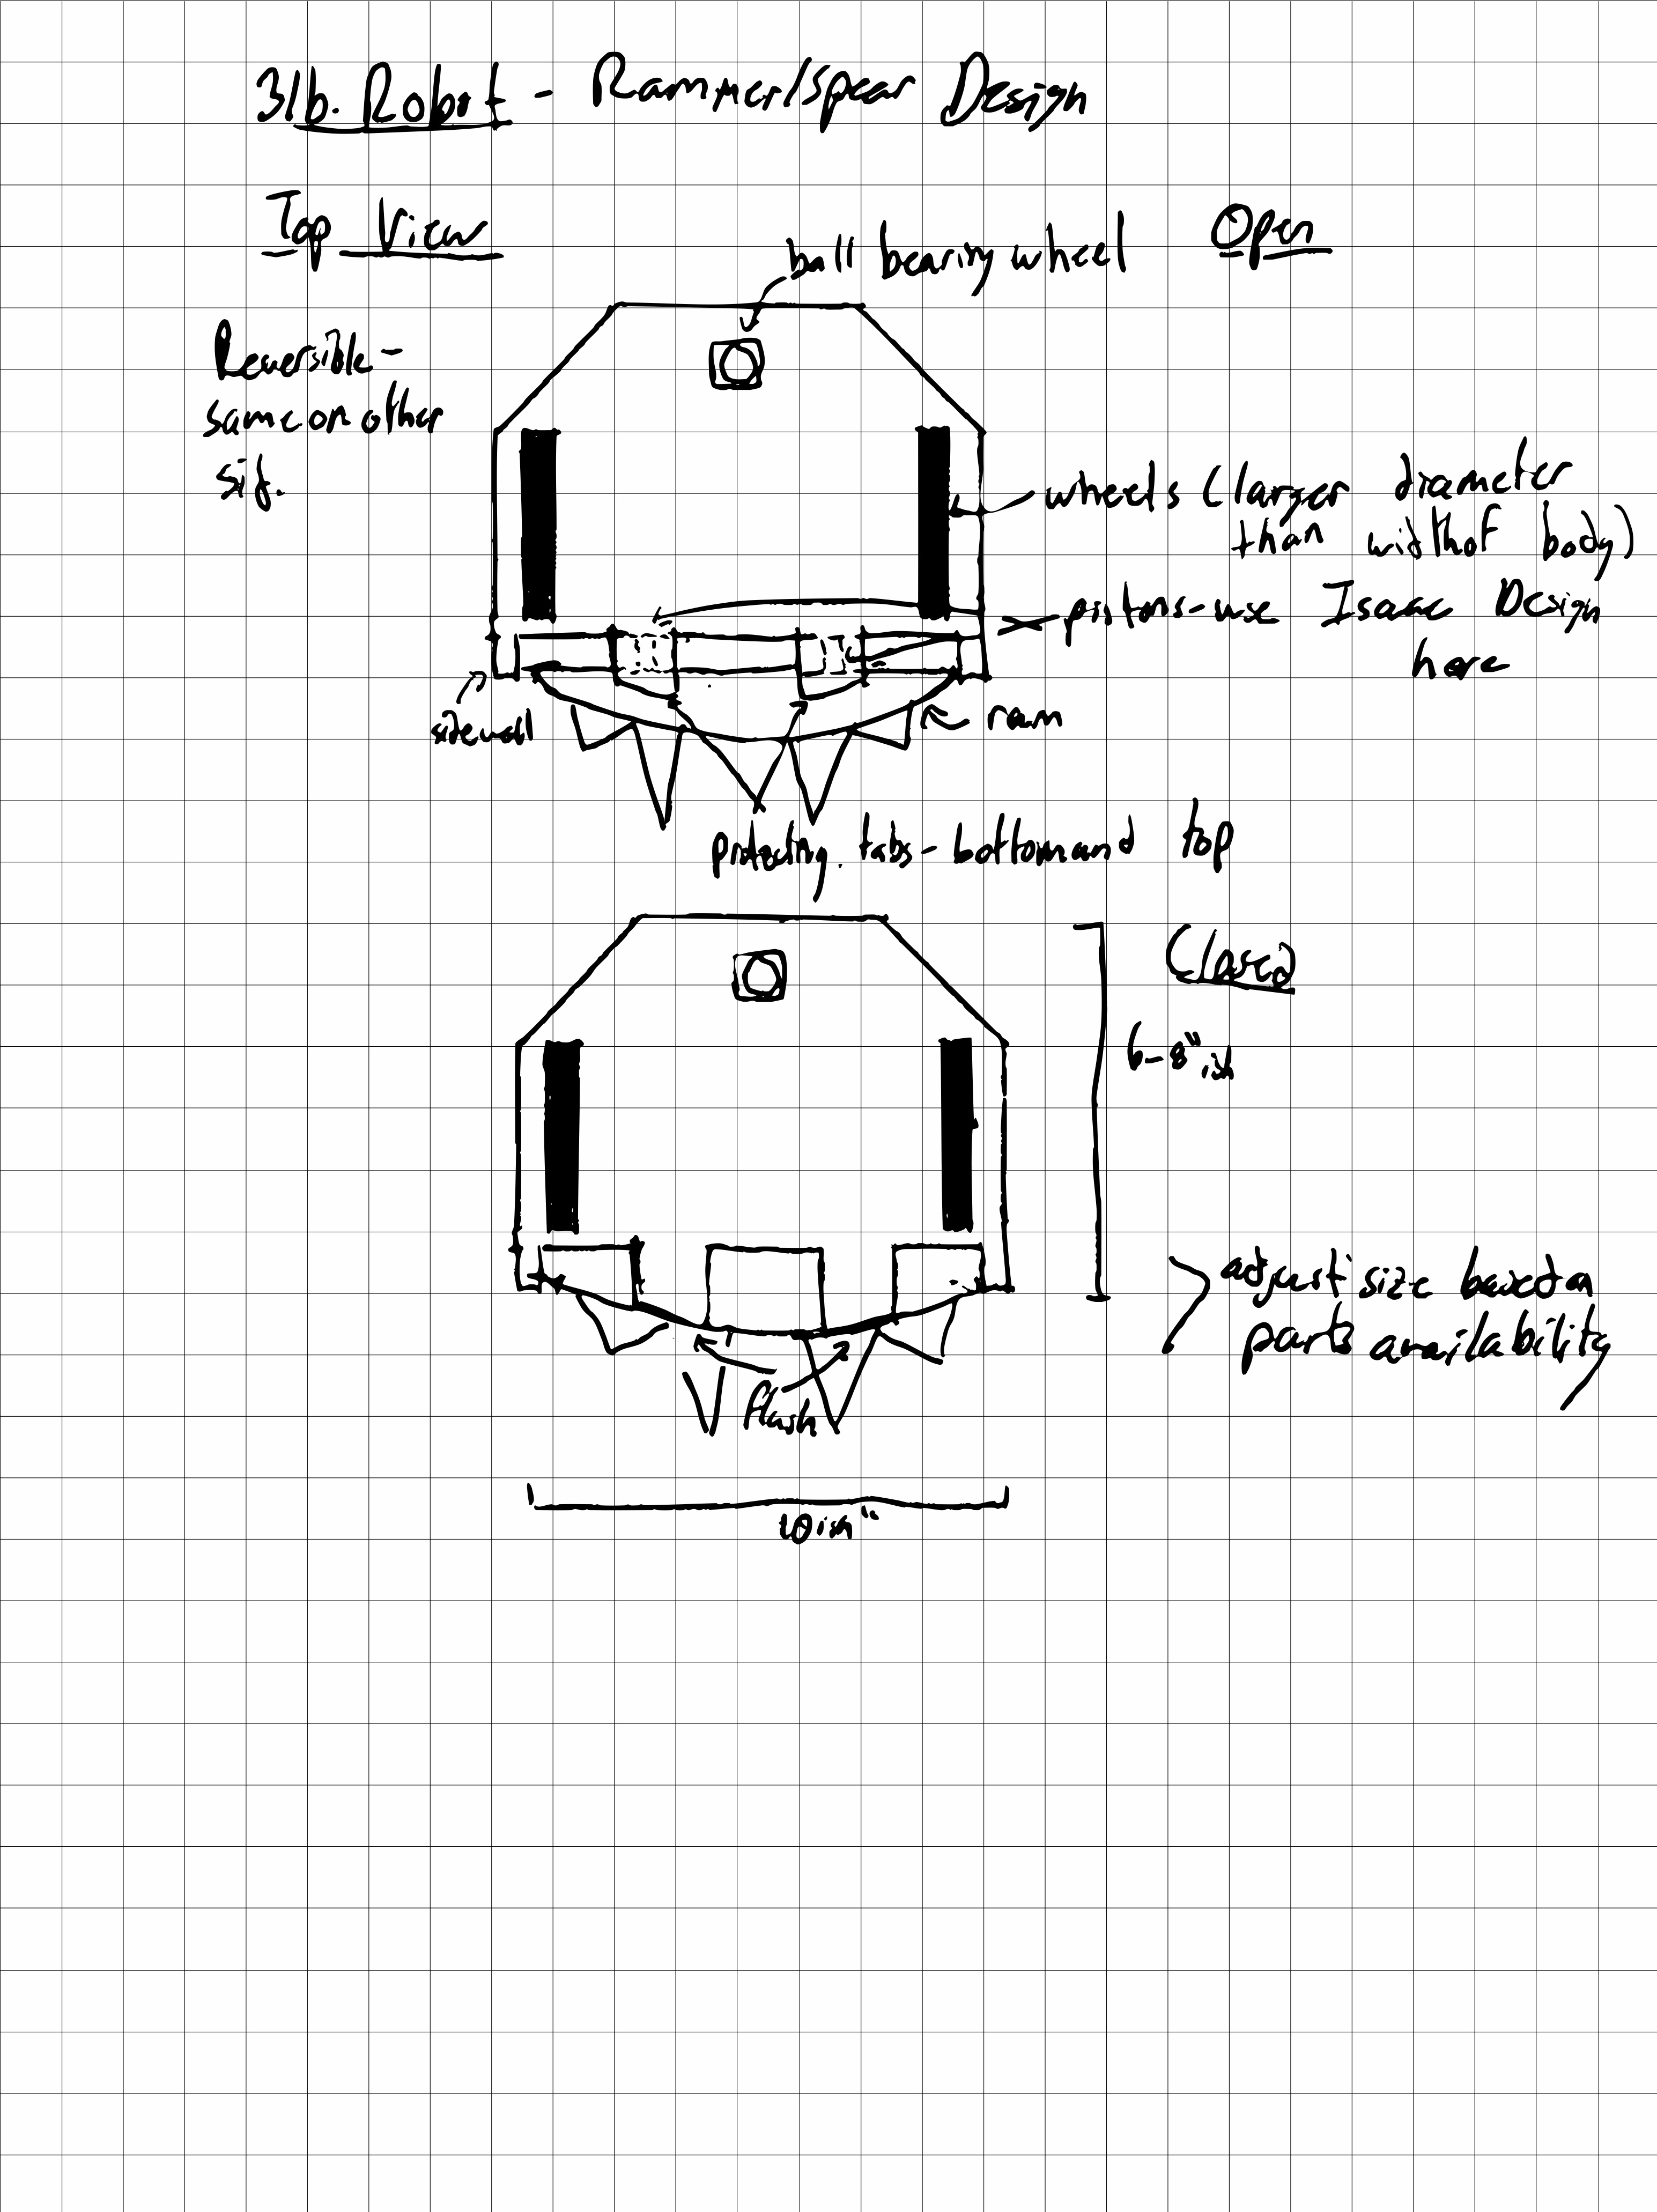 3lb. Robot - Rammer/Spear Design
Top View
Open
ball bearing wheel
Reversible -
same on other
sid.
wheels (larger diameter
than width of body)
pistons - use Isaac Design
here
sidewall
ram
protecting tabs - bottom and top
Closed
6-8" ish
adjust size based on
parts availability
flush
10 ish"